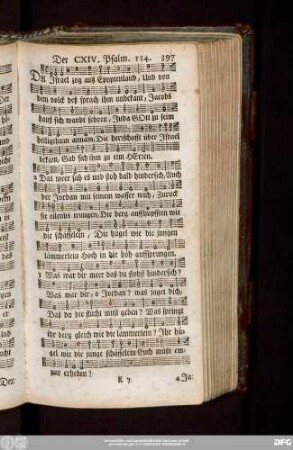 Der CXIV. Psalm. 114. 397
DA Israel zog auß Egyptenland, Und von
dem volck deß sprach ihm unbekant, Jacobs
hauß sich wandt kehren, Juda GOtt zu seim
heiligthum annam, Die herrschafft über Israel
bekam, Gab sich ihm zu eim HErren.
2 Das meer sah es und floh bald hindersich, Auch
der Jordan mit seinem wasser wich, Zuruck
sie eilends Die berg auffhüpfften wie
die schäfflein, Die hügel wie die jungen
lämmerlein Hoch in die höh auffsprungen.
3 Was war dir meer das du flohst hindersich?
Was war dir, o Jordan? was jaget dich,
Das du die flucht must geben? Was springt
ihr berg gleich wie die lämmerlein? Ihr hü-
gel wie die junge schäffelein Euch must em-
por erheben?
K 7 4 Ja: